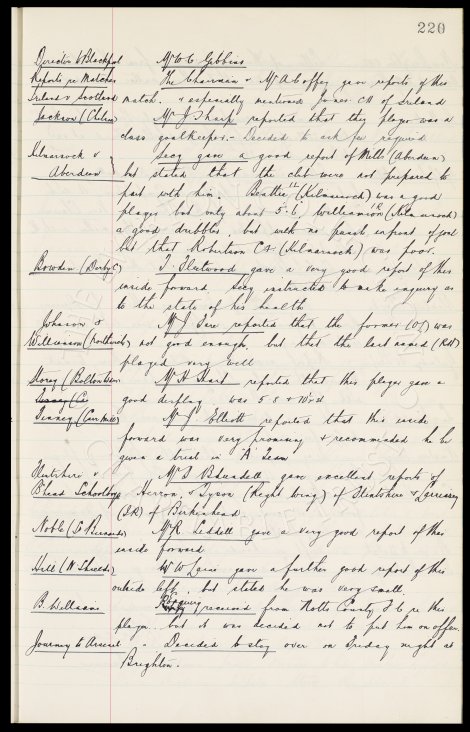 220
Director to Blackpool Mr W C Gibbins
Reports re Matches The Chairman & Mr A Coffey gave reports of this
Ireland v Scotland match. & especially mentioned Jones. CH of Ireland
Jackson (Chelsea) Mr J Sharp reported that this player was a
class goalkeeper. - Decided to ask fee required
Kilmarnock v Secy gave a good report of Mills (Aberdeen)
Aberdeen but stated that the club were not prepared to
part with him. Beattie (Kilmarnock) was a good
player but only about 5.6, Williamson (Kilmarnock)
a good dribbler, but with no punch in front of goal
but that Robertson CH (Kilmarnock) was poor.
Bowden (Derby C) T. Fleetwood gave a very good report of this
inside forward Secy instructed to make enquiry as
to the state of his health
Johnson & Mr J Fare reported that the former (OL) was
Williamson (Rotherh) not good enough, but that the last named (RH)
played very well
Storey (Bolton Wan) Mr H Hart reported that this player gave a
good display was 5 8 & 10st
Finney Mr J Elliott reported that this inside
forward was very promising & recommended he be
given a trial in "A" Team
Flintshire v Mr J Blundell gave excellent reports of
B'head Schoolboys Herron, & Tyson (Right Wing) of Flintshire &
of Birkenhead.
Noble Mr R Liddell gave a very good report of this
inside forward
Hill (N Shields) W W gave a further good report of this
outside left, but stated he was very small.
B. Williams Enquiry received from Notts County F C re this
player. but it was decided not to put him on offer.
Journey to Arsenal - Decided to stay over on Friday night at
Brighton.